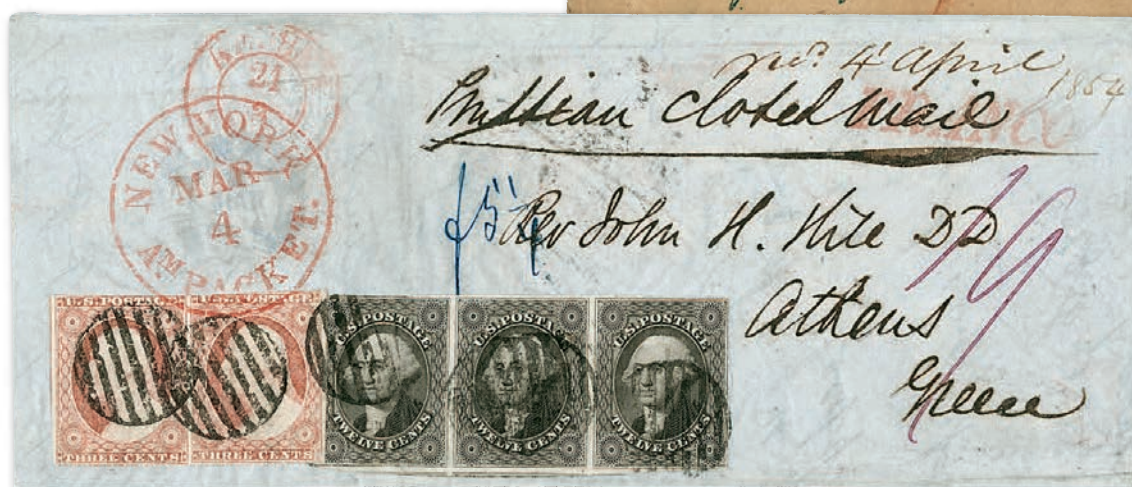 21
NEW YORK
MAR
4
AM. PACKET.
recd. 4 April
1854
Prussian Closed Mail
Rev John H. Hill DD
Athens
Greece
19
U.S. POSTAGE
THREE CENTS
U.S. POSTAGE
THREE CENTS
U.S. POSTAGE
TWELVE CENTS
U.S. POSTAGE
TWELVE CENTS
U.S. POSTAGE
TWELVE CENTS